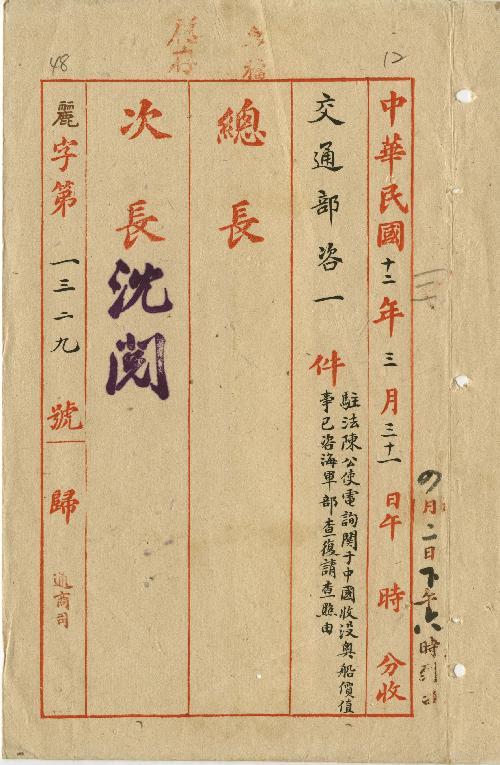 12
48
中華民國十二年三月三十一日午 時 分收
交通部咨一件
駐法陳公使電詢関于中國收没奧船價值
事已咨海軍部查復請查照由
總長
次長
沈閱
麗字第一三二九號歸
通商司
四月二日下午六時到